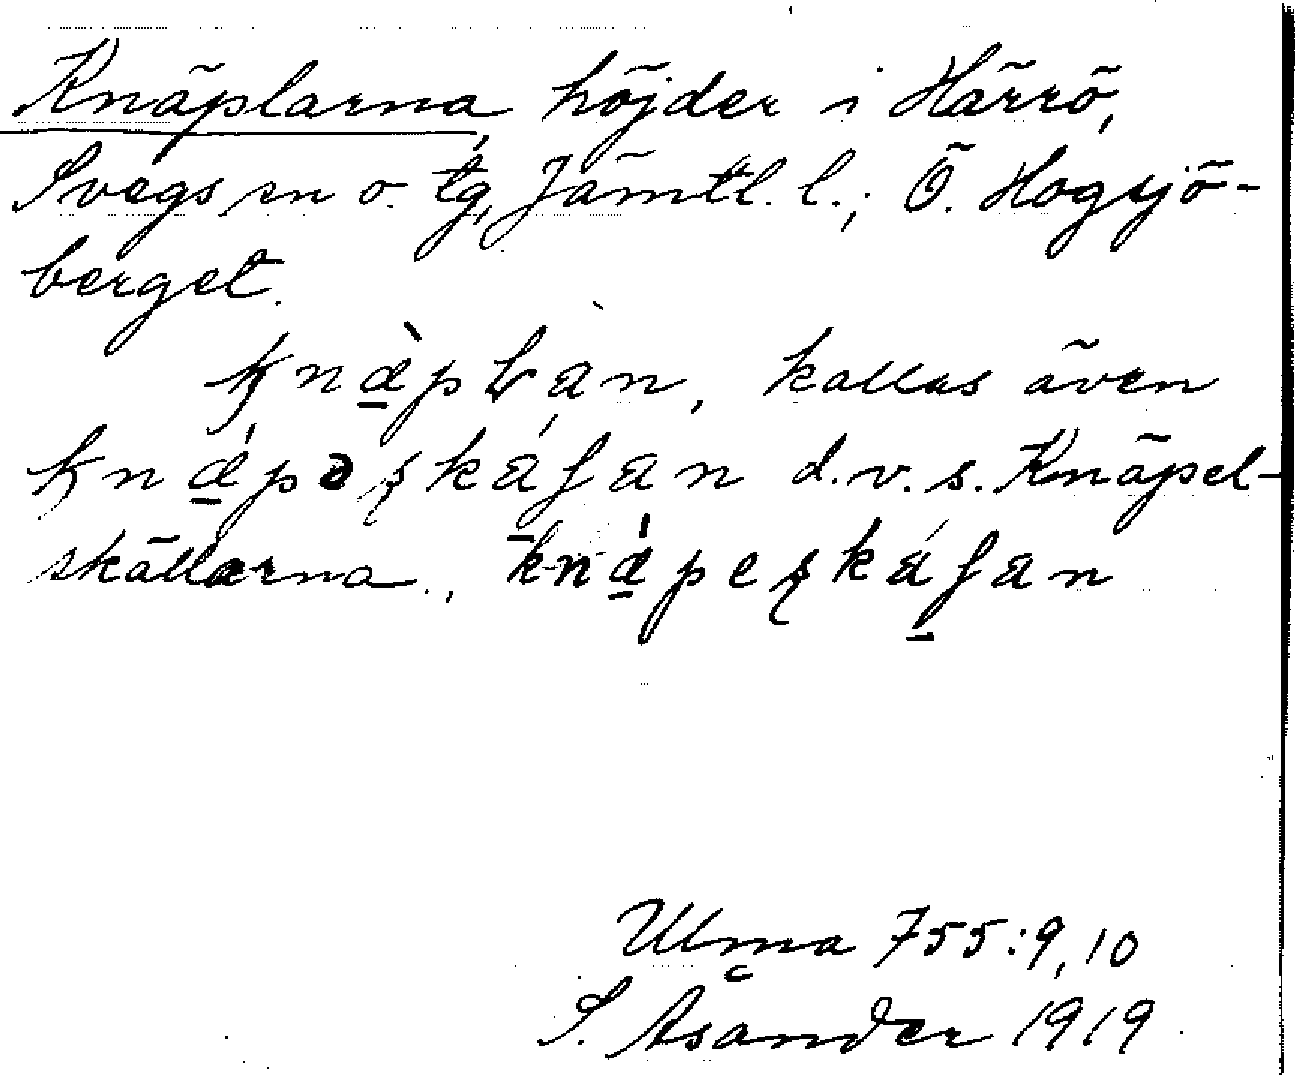 Knäplarna, höjder i Härrö,
Svegs sn o. tg, Jämtl. l.; Ö. Hogsjö-
berget.
knæ̀pɫan, kallas även
knǽpəʂkáʃan d.v.s. Knäpel-
skällarna., knǽpeʂkáʃan
Ulma 755:9,10
S. Åsander 1919